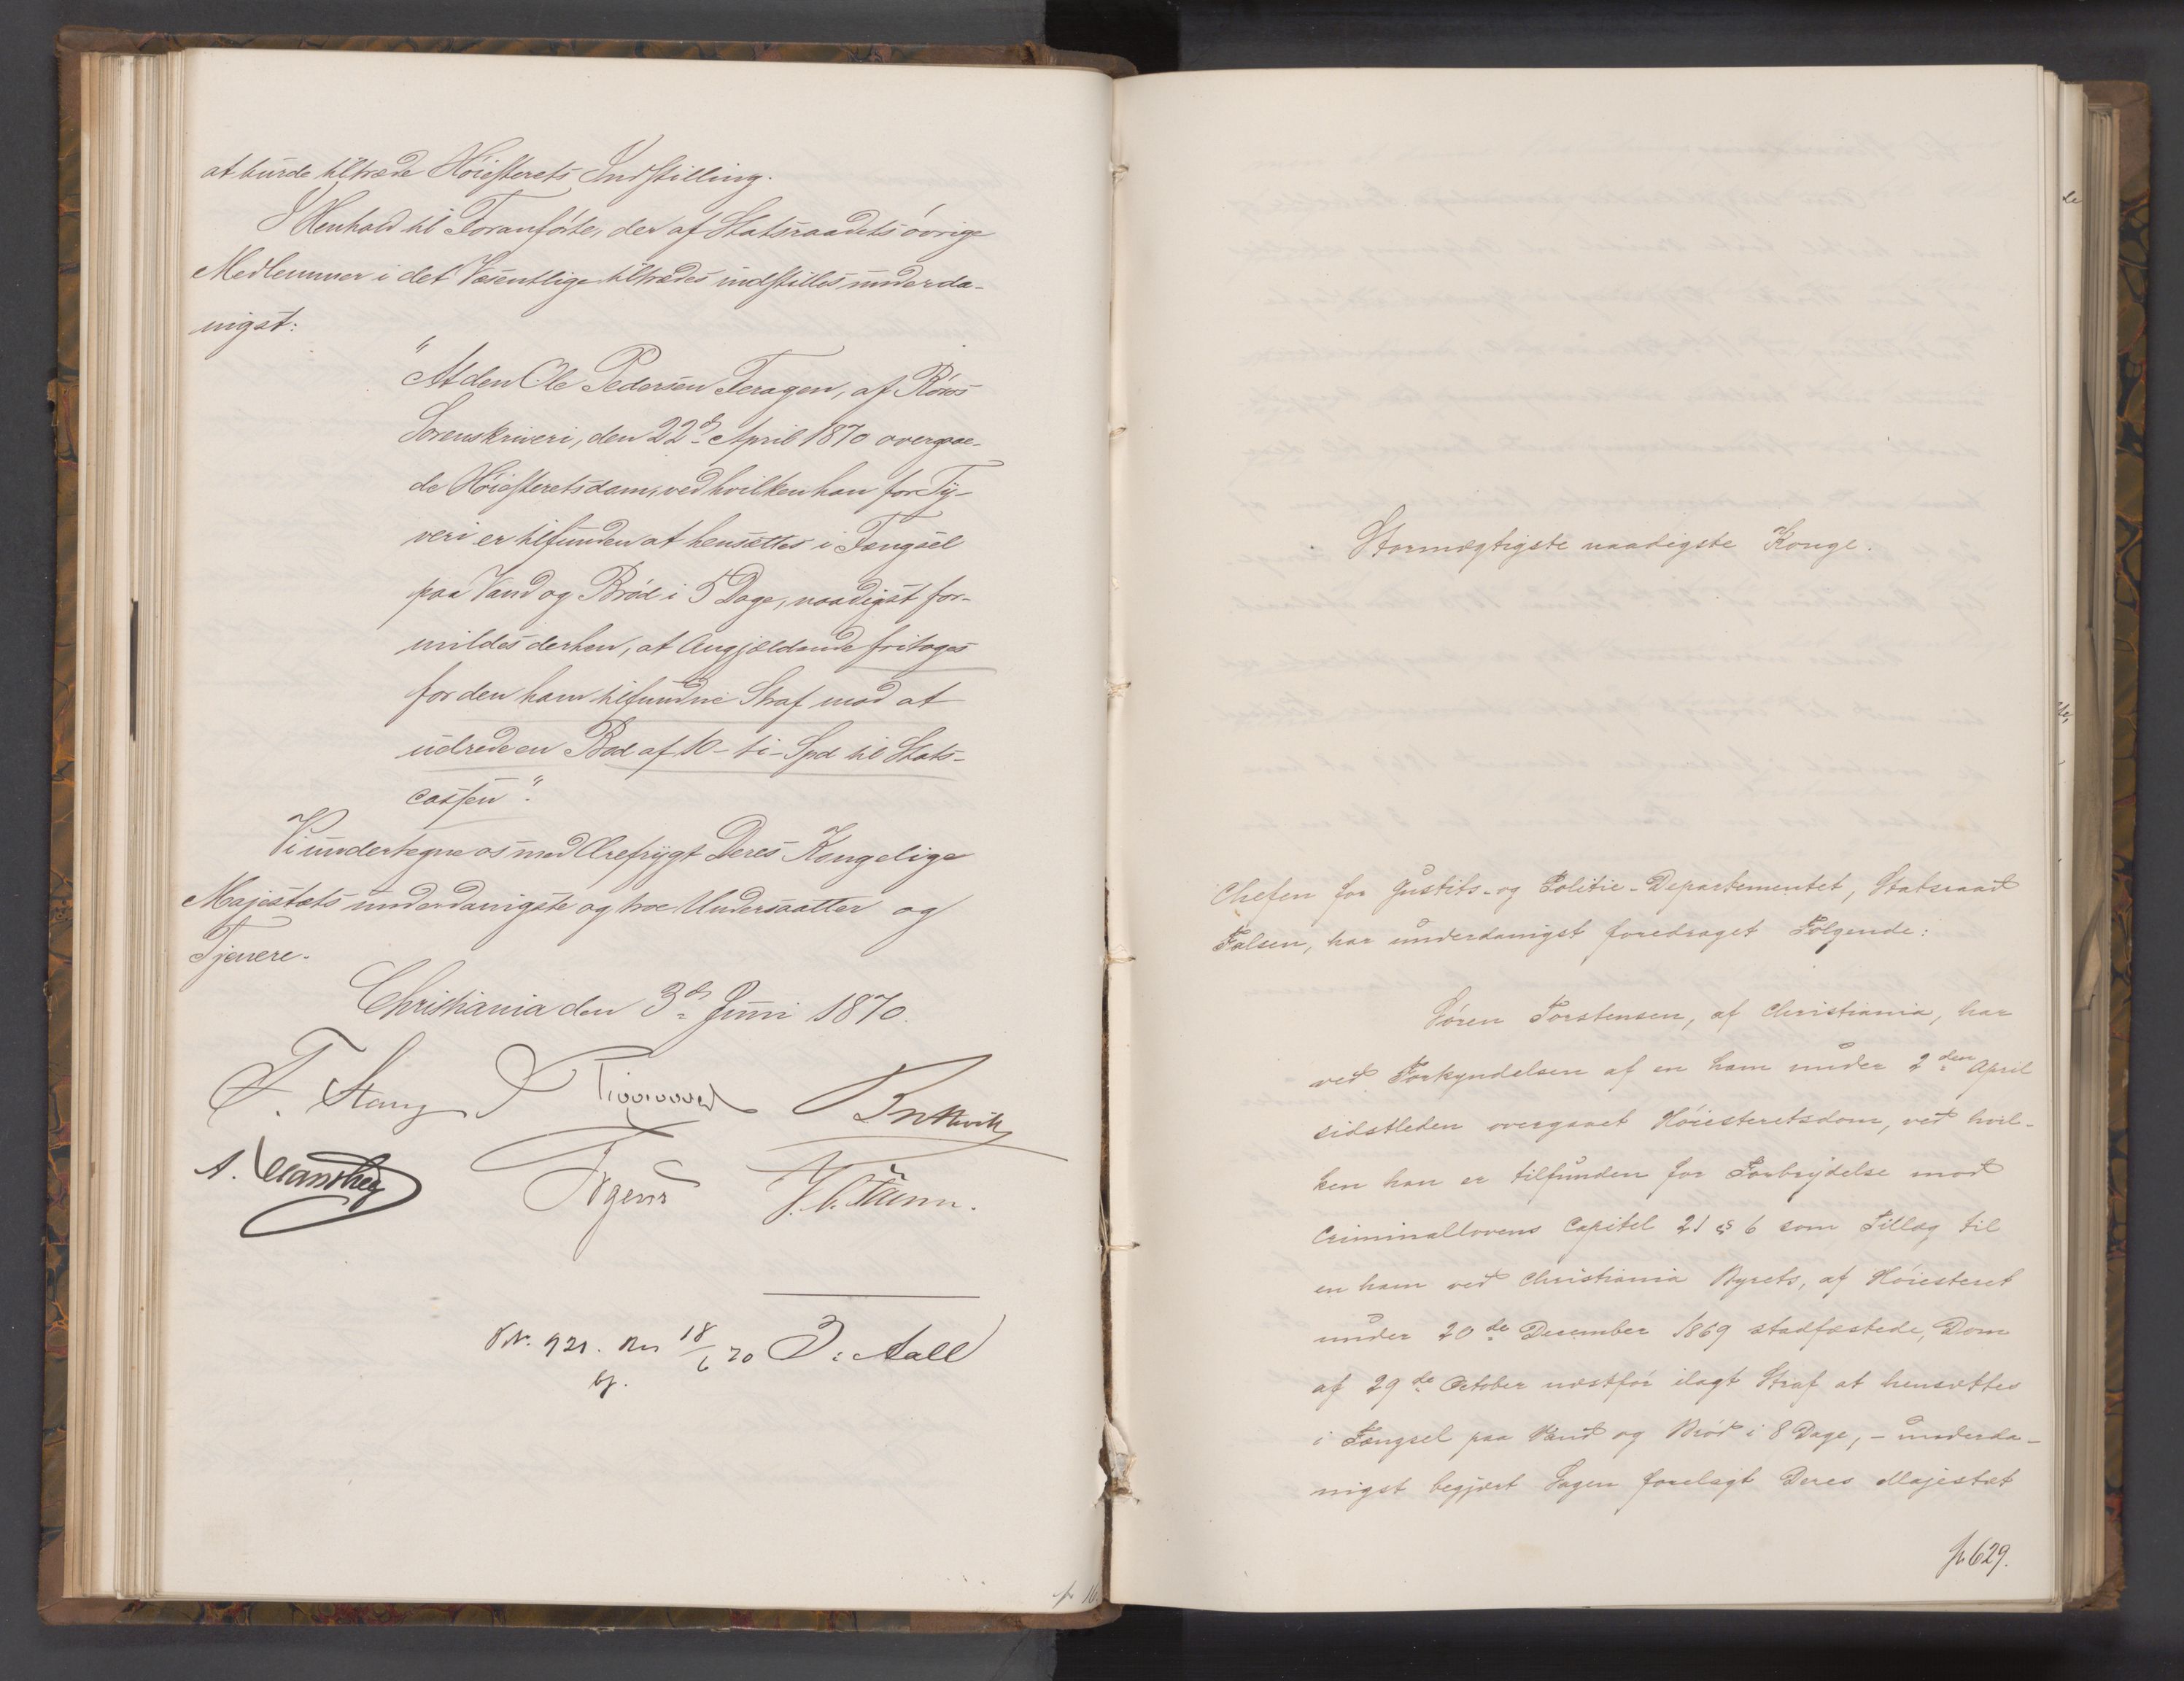 at burde tiltræde Høiesterets Indstilling.
I Henhold til Foranførte, der af Statsraadets øvrige
Medlemmer i det Væsentlige tiltrædes indstilles underda-
nigst:
"At den Ole Pedersen Feragen, af Røros
Sorenskriveri, den 22de April 1870 overgaae-
de Høiesteretsdom, ved hvilken han for Ty-
veri er tilfunden at hensættes i Fængsel
paa Vand og Brød i 5 Dage, naadigst for-
mildes derhen, at Angjældende fritages
for den ham tilfundne Straf mod at
udrede en Bod af 10 - ti - Spd til Stats-
cassen".
Vi undertegne os med Ærefrygt Deres Kongelige
Majestæts underdanigste og troe Undersaatter og
Tjenere.
Christiania den 3de Juni 1870.
F. Stang
A.
Irgens
No. 921. Res 18/6 70 J: Aall
bf.
Stormægtigste naadigste Konge.
Chefen for Justits- og Politie-Departementet, Statsraad
Falsen, har underdanigst foredraget Følgende:
Søren Torstensen, af Christiania, har
ved Forkyndelsen af en ham under 2den April
sidstleden overgaaet Høiesteretsdom, ved hvil-
ken han er tilfunden for Forbrydelse mod
Criminallovens Capitel 21 § 6 som Tillæg til
en ham ved Christiania Byrets, af Høiesteret
under 20de December 1869 stadfæstede, Dom
af 29de October næstfør ilagt Straf at hensættes
i Fængsel paa Vand og Brød i 8 Dage, - underda-
nigst begjært Sagen forelagt Deres Majestæt
p. 629.